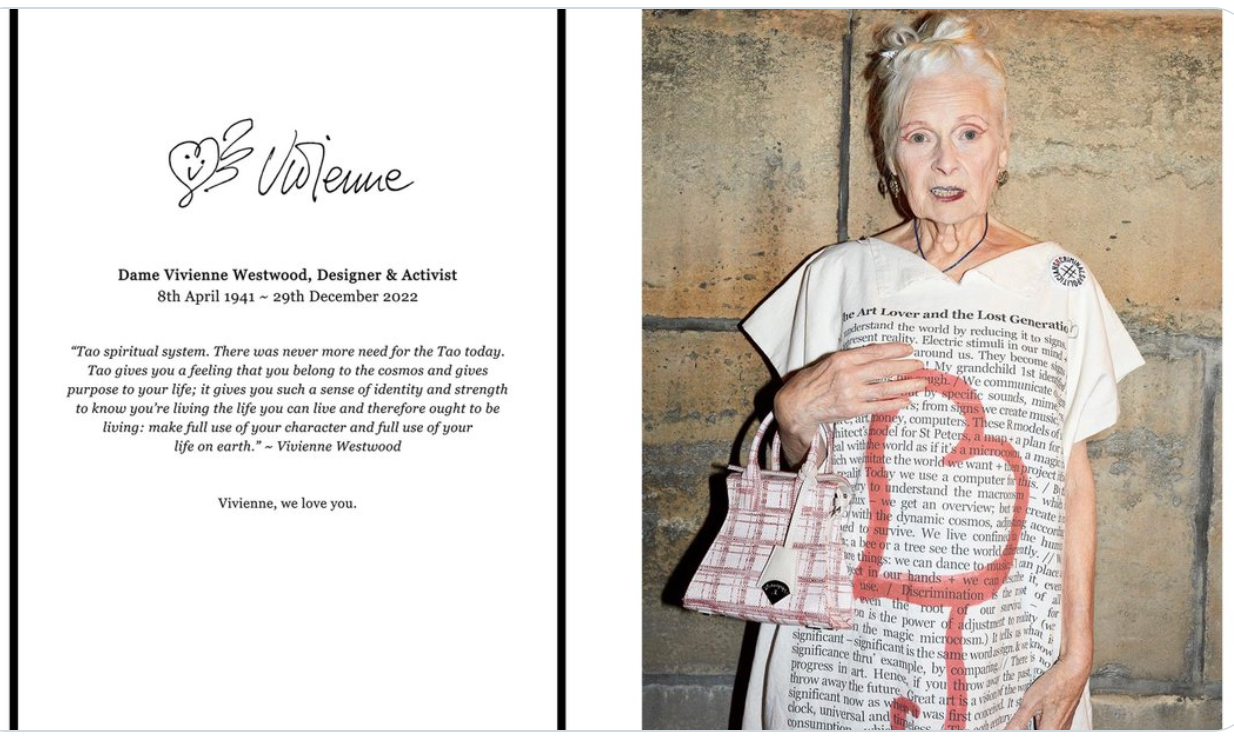 Vivienne
Dame Vivienne Westwood, Designer & Activist
8th April 1941 ~ 29th December 2022
“Tao spiritual system. There was never more need for the Tao today.
Tao gives you a feeling that you belong to the cosmos and gives
purpose to your life; it gives you such a sense of identity and strength
to know you’re living the life you can live and therefore ought to be
living: make full use of your character and full use of your
life on earth.” ~ Vivienne Westwood
Vivienne, we love you.
he Art Lover and the Lost Generatio
understand the world by reducing it to signs,
present reality. Electric stimuli in our mind
around us. They become signs
! My grandchild 1st
ough. / We communicate
by specific sounds, mime,
s; from signs we create music,
money, computers. These models of
model for St Peters, a map + a plan for
eal with the world as if it’s a microcosm, a magic
the world we want + project
Today we use a computer this. / 
to understand the macrocosm –
– we get an overview; but create
with the dynamic cosmos, according
ed to survive. We live confined the
a bee or a tree see the world differently. //
things: we can dance to music can place
in our hands + we can describe it, even
use. / Discrimination is the root of all
even the root of our survival – for
is the power of adjustment to reality (we
the magic microcosm.) It tells us what is
significant – significant is the same word as sign. & we know
significance thru’ example, by comparing. / There is no
progress in art. Hence, if you throw away the past, you
throw away the future. Great art is a vision of the
significant now as when it was first conceived. It
clock, universal and timeless. The
consumption